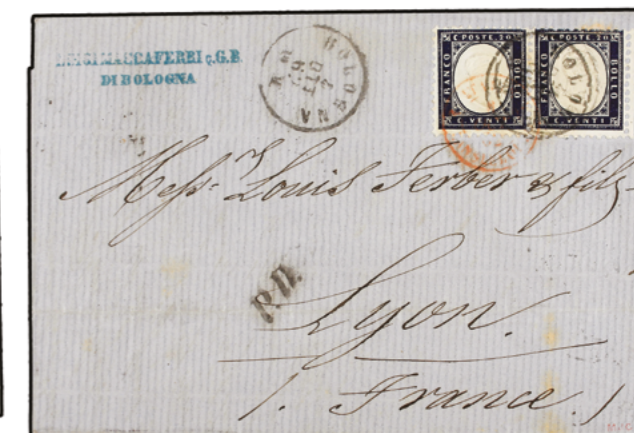 LUIGI MACCAFERRI q. G. B.
DI BOLOGNA
BOLOGNA
C. POSTE. 20
FRANCO
BOLLO
C. VENTI
C. POSTE. 20
FRANCO
BOLLO
C. VENTI
Mess.rs Louis Ferber & fils
P.D.
Lyon.
/. France. /